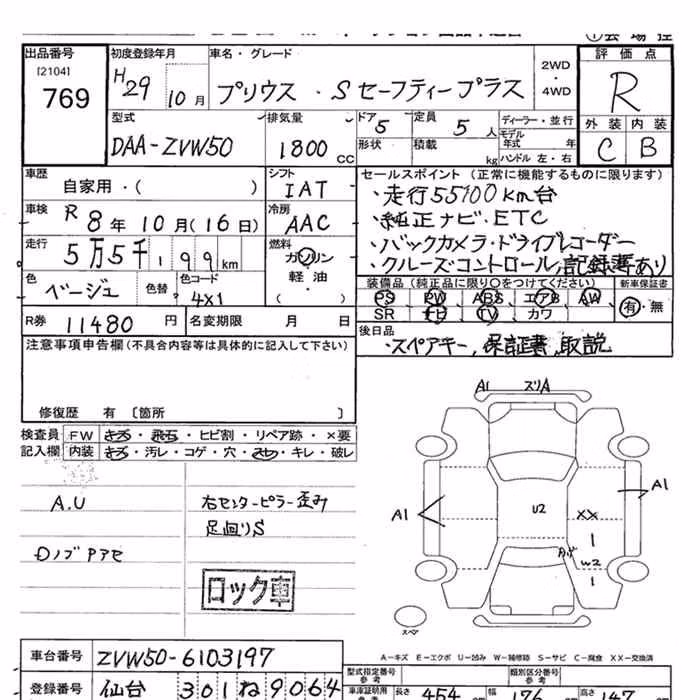 出品番号 初度登録年月 車名・グレード 2WD・4WD 評価点
[2104]
769 H29 10月 プリウス・Sセーフティープラス R
型式 排気量 ドア 5 定員 5人 ディーラー・並行 外装 内装
DAA-ZVW50 1800CC 形状 積載 kg モデル年式 年 ハンドル 左・右 C B
車歴 自家用・( ) シフト IAT セールスポイント(正常に機能するものに限ります)
・走行55100km台
車検 R8年10月(16日) 冷房 AAC ・純正ナビ.ETC
走行 5万5千199km 燃料 ガソリン ・バックカメラ・ドライブレコーダー
軽・油 ・クルーズコントロール,記録簿あり
色 ベージュ 色替 色コード 4X1 ( ) 装備品(純正品に限り○をつけてください) 新車保証書
PS PW ABS エアB AW 有・無
R券 11480円 名変期限 月 日 SR ナビ TV カワ
注意事項申告欄(不具合内容等は具体的に記入して下さい) 後日品
・スペアキー,保証書,取説
修復歴 有〔箇所 〕
検査員 FW キズ・飛石・ヒビ割・リペア跡・×要
記入欄 内装 キズ・汚レ・コゲ・穴・スレ・キレ・破レ
A1 ズリA
A.U 右センターピラー歪み
足回りS
A1 U2 XX A1
Dノブアセ
W2
ロック車
スペア
A-キズ E-エクボ U-凹み W-補修跡 S-サビ C-腐食 XX-交換済
車台番号 ZVW50-6103197
型式指定番号 参考 類別区分番号 参考
登録番号 仙台 301ね9064 車庫証明用 長さ 454 幅 176 高さ 147